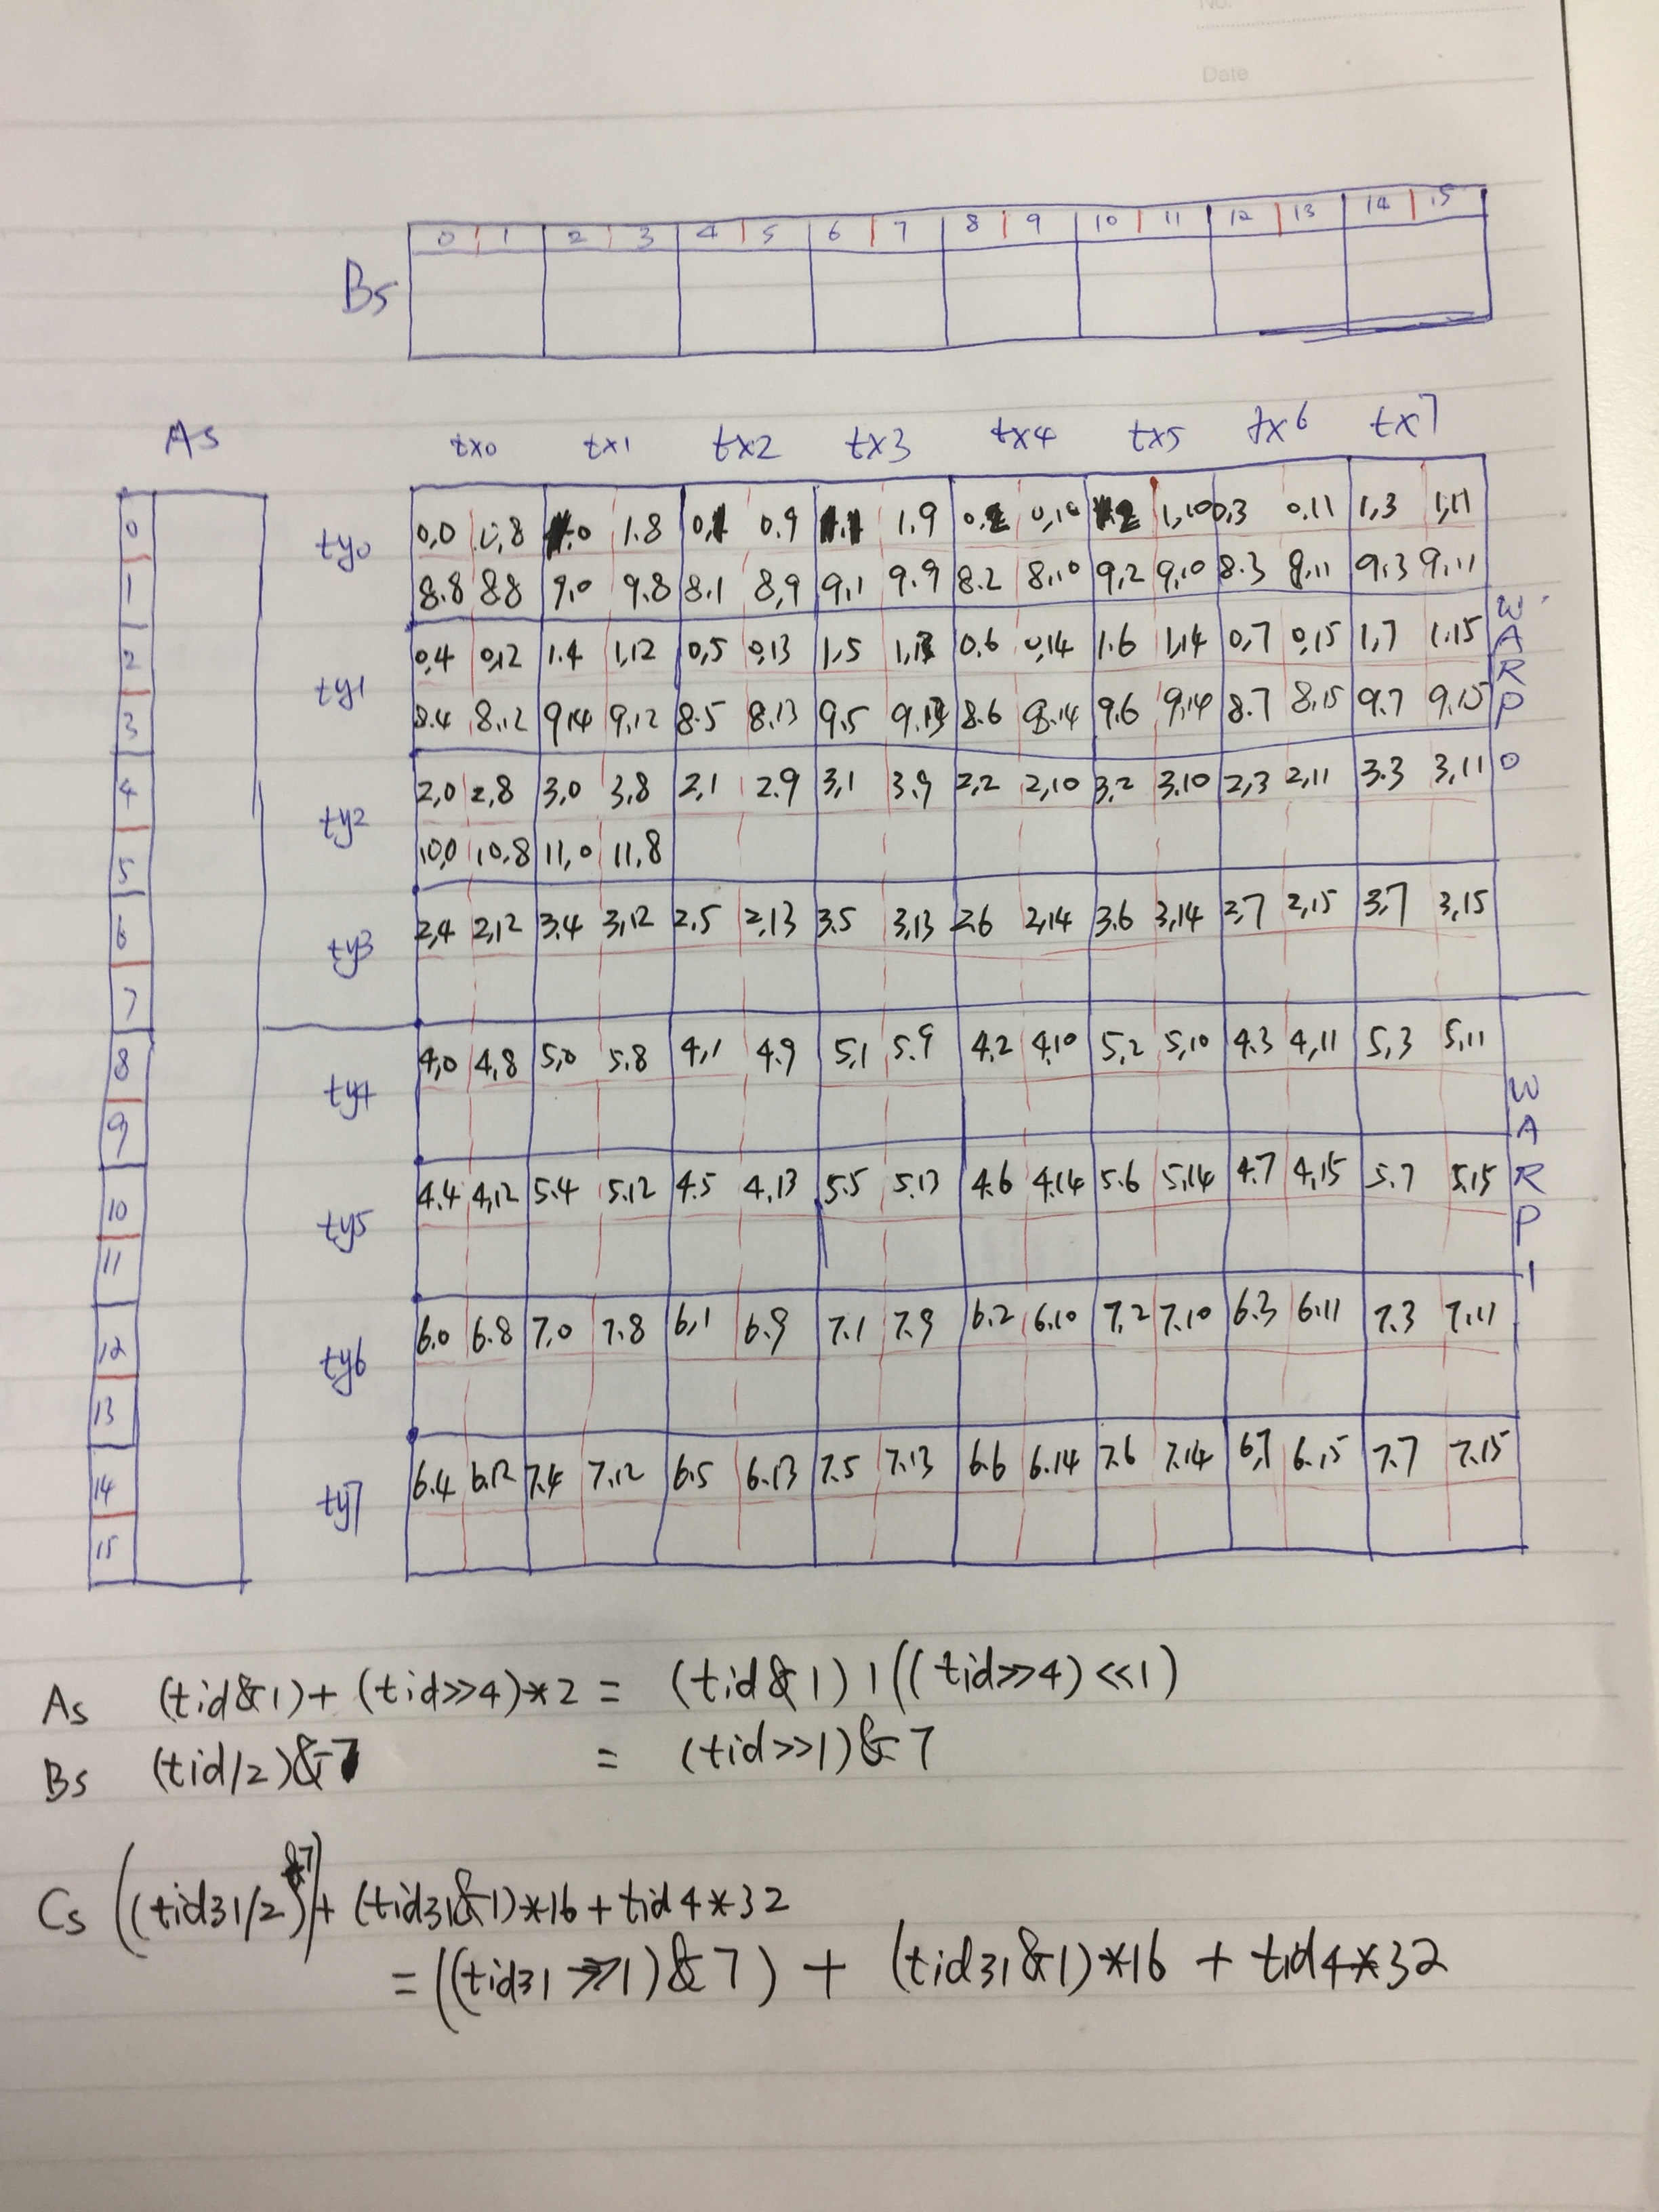 No.
Date
0 1 2 3 4 5 6 7 8 9 10 11 12 13 14 15
Bs
As
tx0 tx1 tx2 tx3 tx4 tx5 tx6 tx7
0 ty0 0,0 0,8 .0 1.8 0,1 0.9 1.1 1.9 0.2 0,10 2 1,10 0,3 0,11 1,3 1,11
1 8.8 8.8 9,0 9.8 8.1 8,9 9,1 9.9 8.2 8,10 9,2 9,10 8.3 8,11 9,3 9,11
2 ty1 0,4 0,12 1.4 1,12 0,5 0,13 1,5 1,13 0.6 0,14 1.6 1,14 0,7 0,15 1,7 1.15
3 8.4 8.12 9,4 9,12 8.5 8.13 9,5 9.13 8.6 8.14 9,6 9,14 8.7 8,15 9.7 9,15
4 ty2 2,0 2,8 3,0 3,8 2,1 2.9 3,1 3.9 2,2 2,10 3,2 3,10 2,3 2,11 3.3 3,11
5 10,0 10,8 11,0 11,8
6 ty3 2,4 2,12 3.4 3,12 2,5 2,13 3.5 3,13 2.6 2,14 3.6 3,14 2,7 2,15 3,7 3,15
7
WARP 0
8 ty4 4,0 4,8 5,0 5.8 4,1 4.9 5,1 5.9 4.2 4,10 5,2 5,10 4.3 4,11 5,3 5,11
9
10 ty5 4.4 4,12 5.4 5.12 4.5 4,13 5.5 5.13 4.6 4.14 5.6 5,14 4.7 4,15 5.7 5.15
11
12 ty6 6.0 6.8 7,0 7.8 6,1 6.9 7.1 7.9 6.2 6.10 7,2 7.10 6.3 6.11 7.3 7.11
13
14 ty7 6.4 6.12 7.4 7.12 6.5 6.13 7.5 7.13 6.6 6.14 7.6 7.14 6,7 6.15 7.7 7.15
15
WARP 1
As (tid&1)+(tid>>4)*2 = (tid&1)|((tid>>4)<<1)
Bs (tid/2)&7 = (tid>>1)&7
Cs ((tid31/2)&7)+(tid31&1)*16+tid4*32
=((tid31>>1)&7) + (tid31&1)*16 + tid4*32